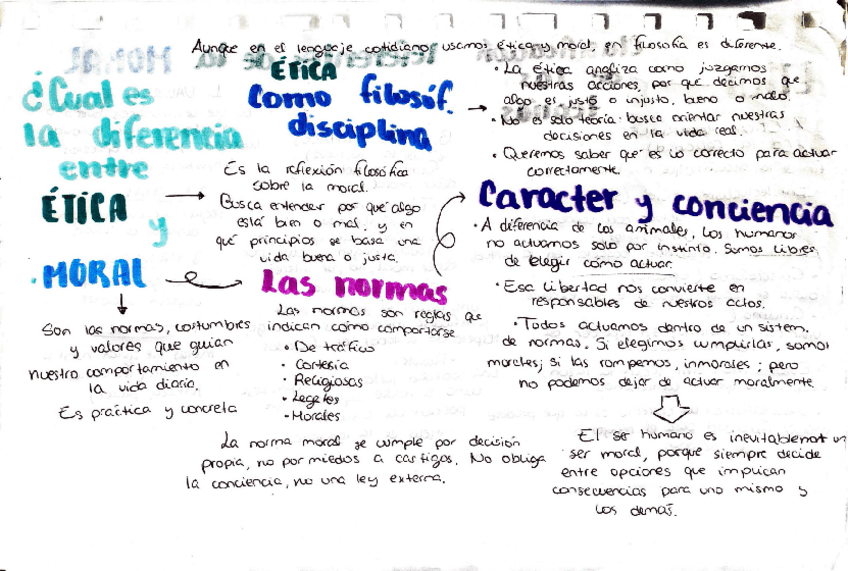 Aunque en el lenguaje cotidiano usamos ética y moral, en filosofía es diferente.
¿Cual es
la diferencia
entre
ÉTICA
y
MORAL
ÉTICA
Como filosóf.
disciplina
• La ética analiza como juzgamos
nuestras acciones, por qué decimos que
algo es justo o injusto, bueno o malo.
• No es solo teoría: busca orientar nuestras
decisiones en la vida real.
• Queremos saber qué es lo correcto para actuar
correctamente.
Es la reflexión filosófica
sobre la moral.
Busca entender por qué algo
está bien o mal, y en
qué principios se basa una
vida buena o justa.
Son las normas, costumbres
y valores que guían
nuestro comportamiento en
la vida diaria.
Es práctica y concreta
Las normas
Las normas son reglas que
indican cómo comportarse
• De tráfico
• Cortesía
• Religiosas
• Legales
• Morales
La norma moral se cumple por decisión
propia, no por miedos a castigos. No obliga
la conciencia, no una ley externa.
Caracter y conciencia
• A diferencia de los animales, los humanos
no actuamos solo por instinto. Somos libres
de elegir cómo actuar.
• Esa libertad nos convierte en
responsables de nuestros actos.
• Todos actuamos dentro de un sistem.
de normas. Si elegimos cumplirlas, somos
morales; si las rompemos, inmorales; pero
no podemos dejar de actuar moralmente
El ser humano es inevitablemnt un
ser moral, porque siempre decide
entre opciones que implican
consecuencias para uno mismo y
los demás.